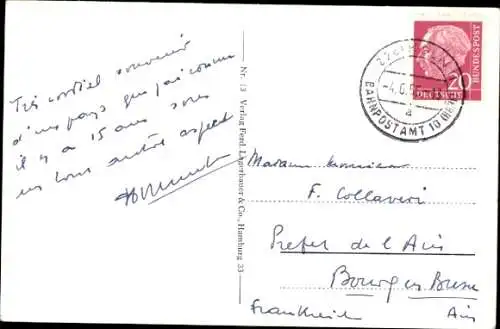 Très cordial souvenir
d'un pays que j'ai connu
il y a 15 ans sous
un tout autre aspect
Nr. 13 Verlag Ferd. Lagerbauer & Co., Hamburg 33
20
DEUTSCHE
BUNDESPOST
BAHNPOSTAMT 10
a
Madame Monsieur
F. Collaveri
Préfet de l'Ain
Bourg en Bresse
Frankreich Ain